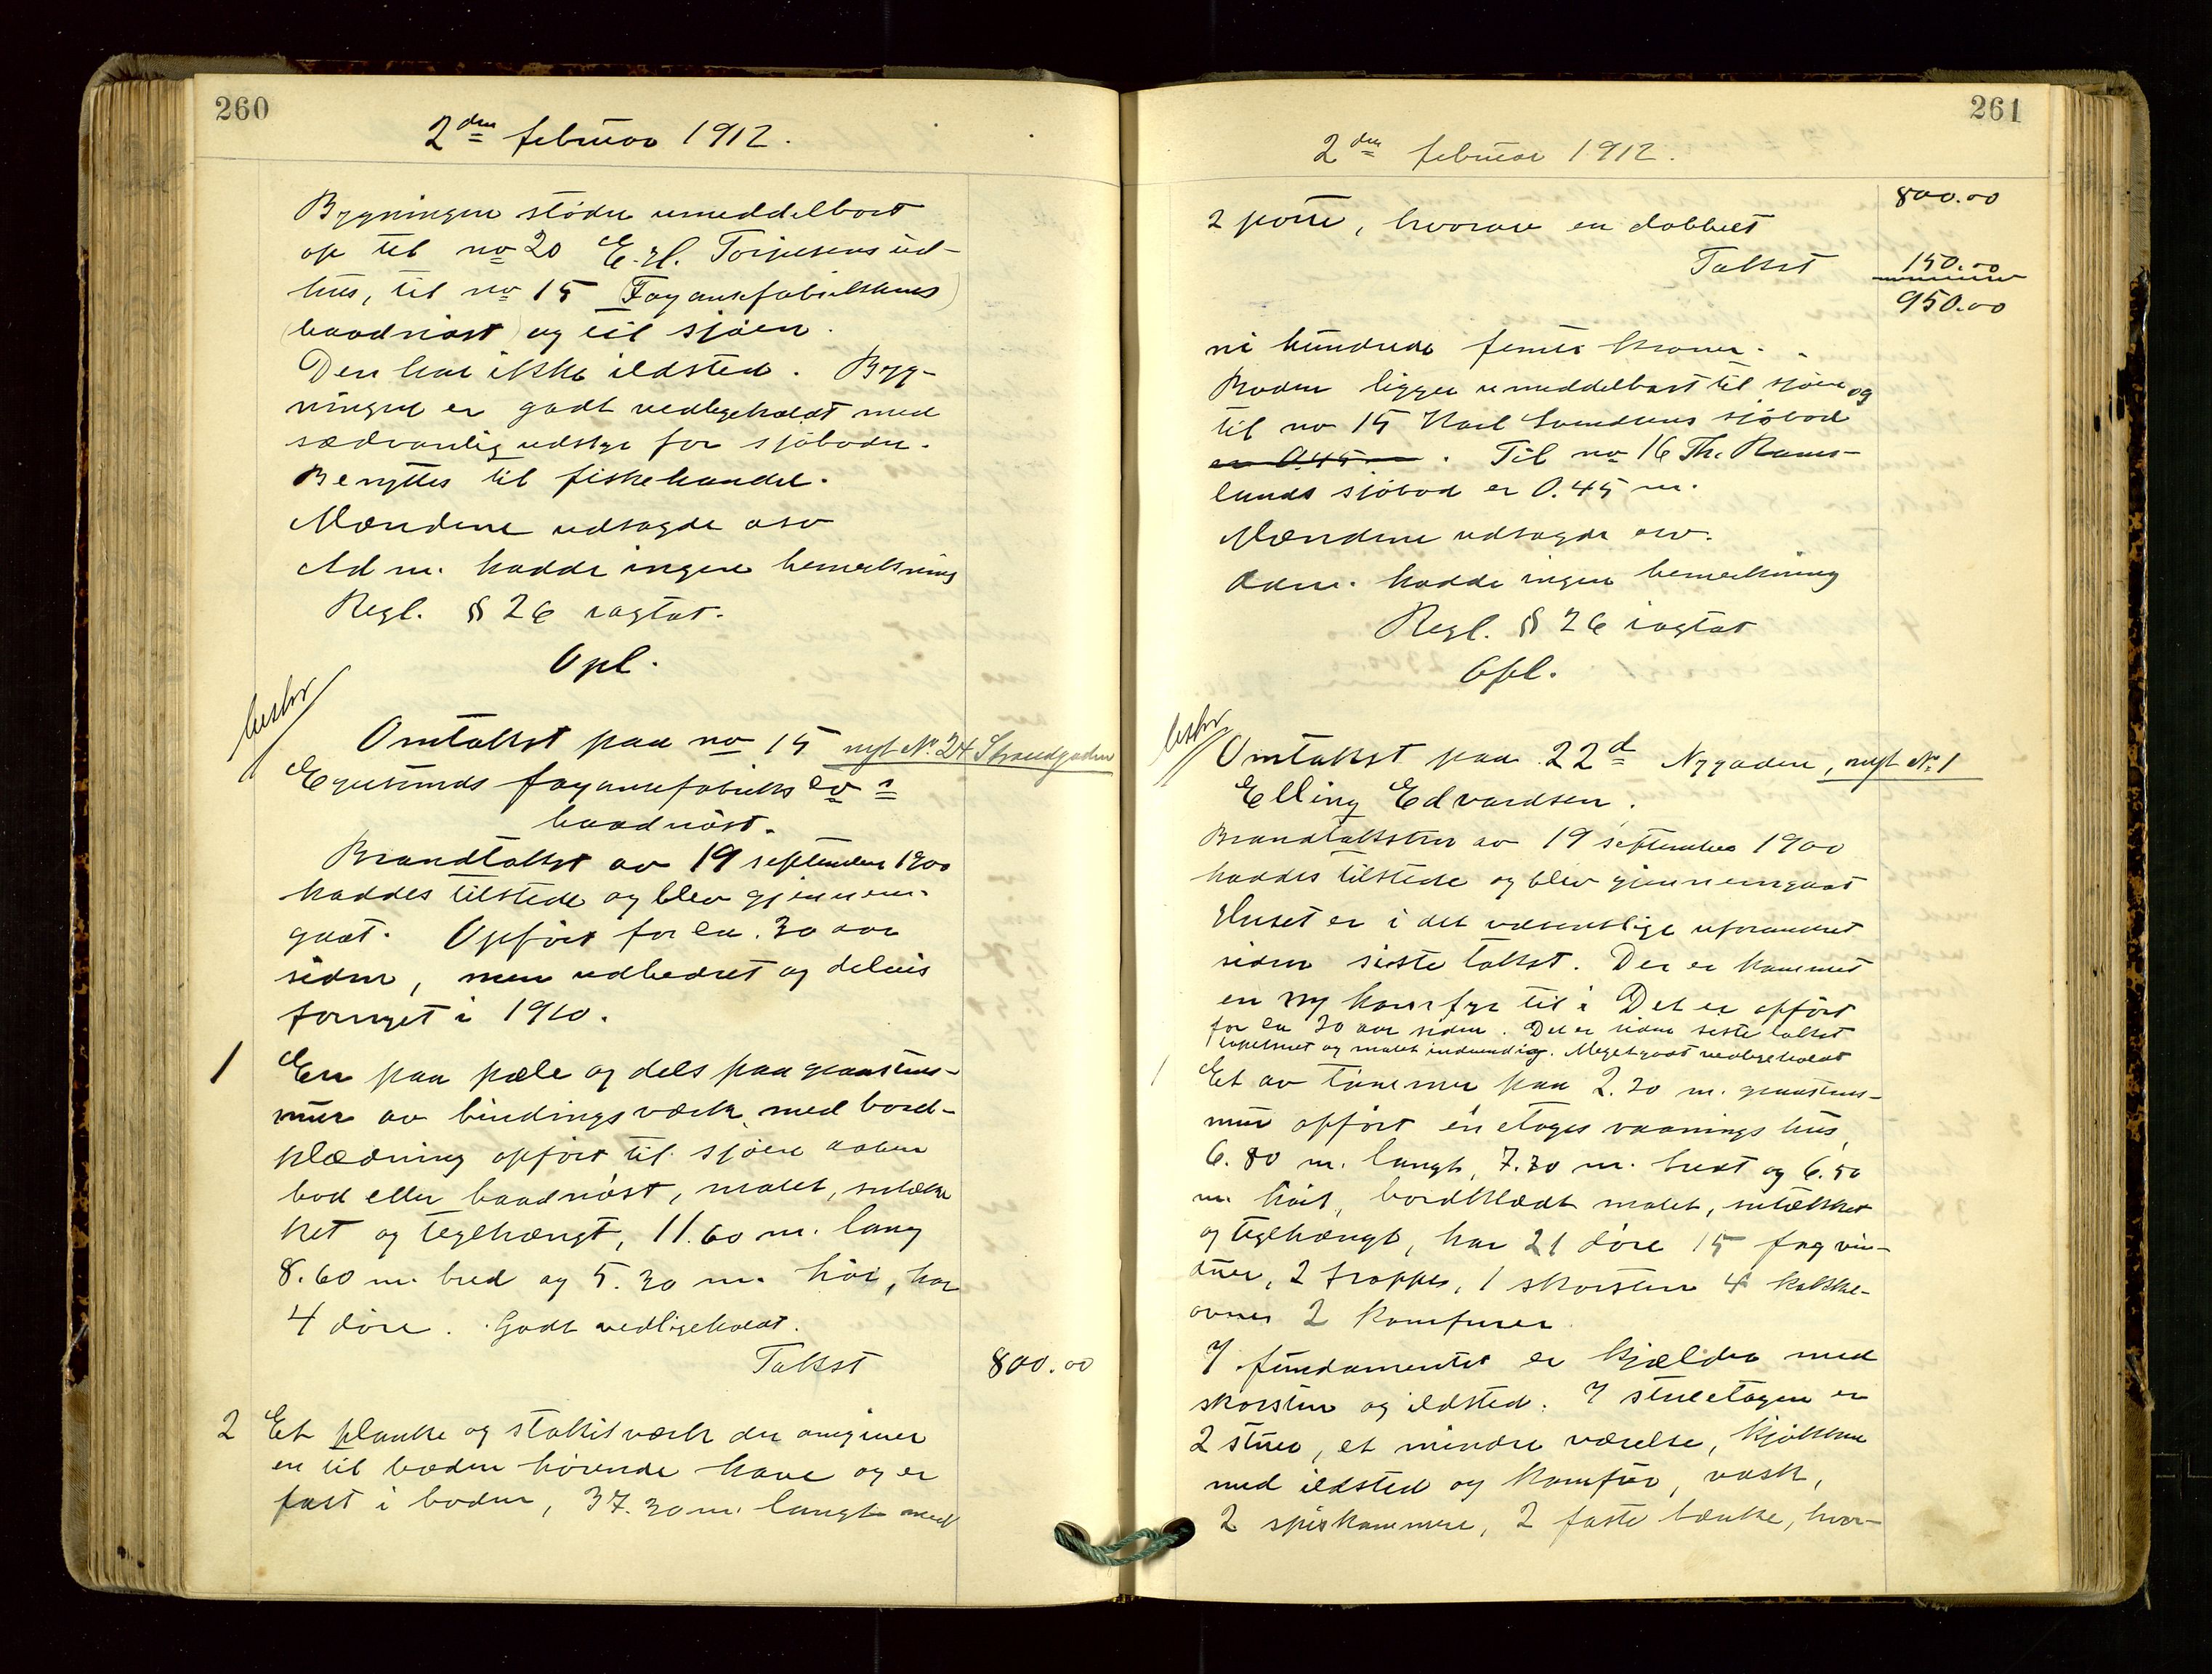 260
2den februar 1912.
Bygningen støder umeddelbart
op til no 20 E. Torjusens ud-
hus, til no 15 (Fayansefabrikkens)
(baadnøst) og til sjøen.
Den har ikke ildsted. Byg-
ningen er godt vedligeholdt med
sædvanlig udstyr for sjøboder.
Benyttes til fiskehandel.
Mændene udsagde osv
Adm. hadde ingen bemerkning
Regl. § 26 iagtat.
Opl.
Omtakst paa no 15 nyt No. 24 Strandgaden
Egersunds fayansefabriks co s
baadnøst.
Brandtakst av 19 september 1900
haddes tilstede og blev gjennem-
gaat. Opført for ca. 30 aar
siden, men udbedret og delvis
fornyet i 1910.
1 En paa pæle og dels paa graastens-
mur av bindingsværk med bord-
klædning opført til sjøen aaben
bod eller baadnøst, malet, sutæk-
ket og teglhængt, 11.60 m. lang
8.60 m. bred og 5.30 m. høi, har
4 døre. Godt vedligeholdt.
Takst 800.00
2 Et planke og stakitværk der omgiver
en til boden hørende have og er
fast i boden, 37.30 m. langt med
261
2den februar 1912.
800.00
2 porte, hvorav en dobbelt
Takst 150.00
950.00
ni hundrede femti kroner.
Boden ligger umeddelbart til sjøen og
til no 15 Karl Svendsens sjøbod
er 0.45 m. Til no 16 Th. Rams-
lands sjøbod er 0.45 m.
Mændene udsagde osv.
Adm. hadde ingen bemerkning
Regl. § 26 iagtat
Opl.
Omtakst paa 22d Nygaden, nyt No 1
Elling Edvardsen.
Brandtaksten av 19 september 1900
haddes tilstede og blev gjennemgaat
Huset er i det væsentlige uforandret
siden siste takst. Der er kommet
en ny komfyr til i Det er opført
for ca 30 aar siden. Det er siden siste takst
tapetseret og malet indvendig. Meget godt vedligeholdt
1 Et av tømmer paa 2.30 m. graastens-
mur opført én etages vaaningshus,
6.80 m. langt, 7.30 m. bredt og 6.50
m. høit, bordklædt malet, sutækket
og teglhængt, har 21 døre 15 fag vin-
duer, 2 trapper, 1 skorsten 4 kakke-
ovner 2 komfurer
I fundamentet er kjælder med
skorsten og ildsted. I stueetagen er
2 stuer, et mindre værelse, kjøkken
med ildsted og komfur, vask,
2 spiskammere, 2 faste bænke, hvor-